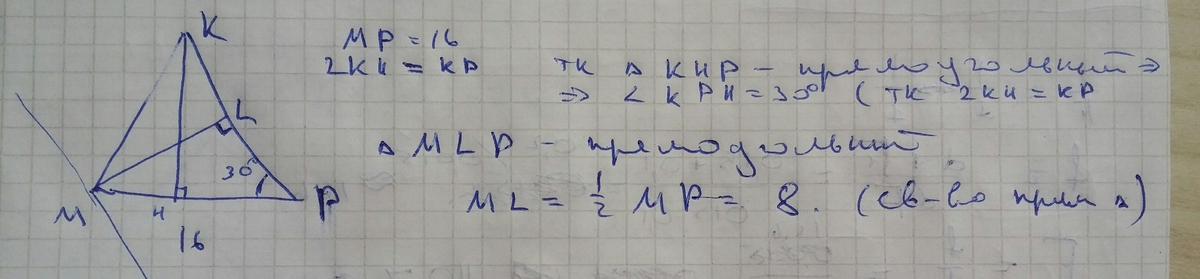 K
MP = 16
2KH = KP тк △ KHP - прямоугольный ⇒
⇒ ∠ KPH = 30° ( тк 2KH = KP
L
△ MLP - прямоугольный
30°
M H P
ML = 1/2 MP = 8. (св-во прям △)
16